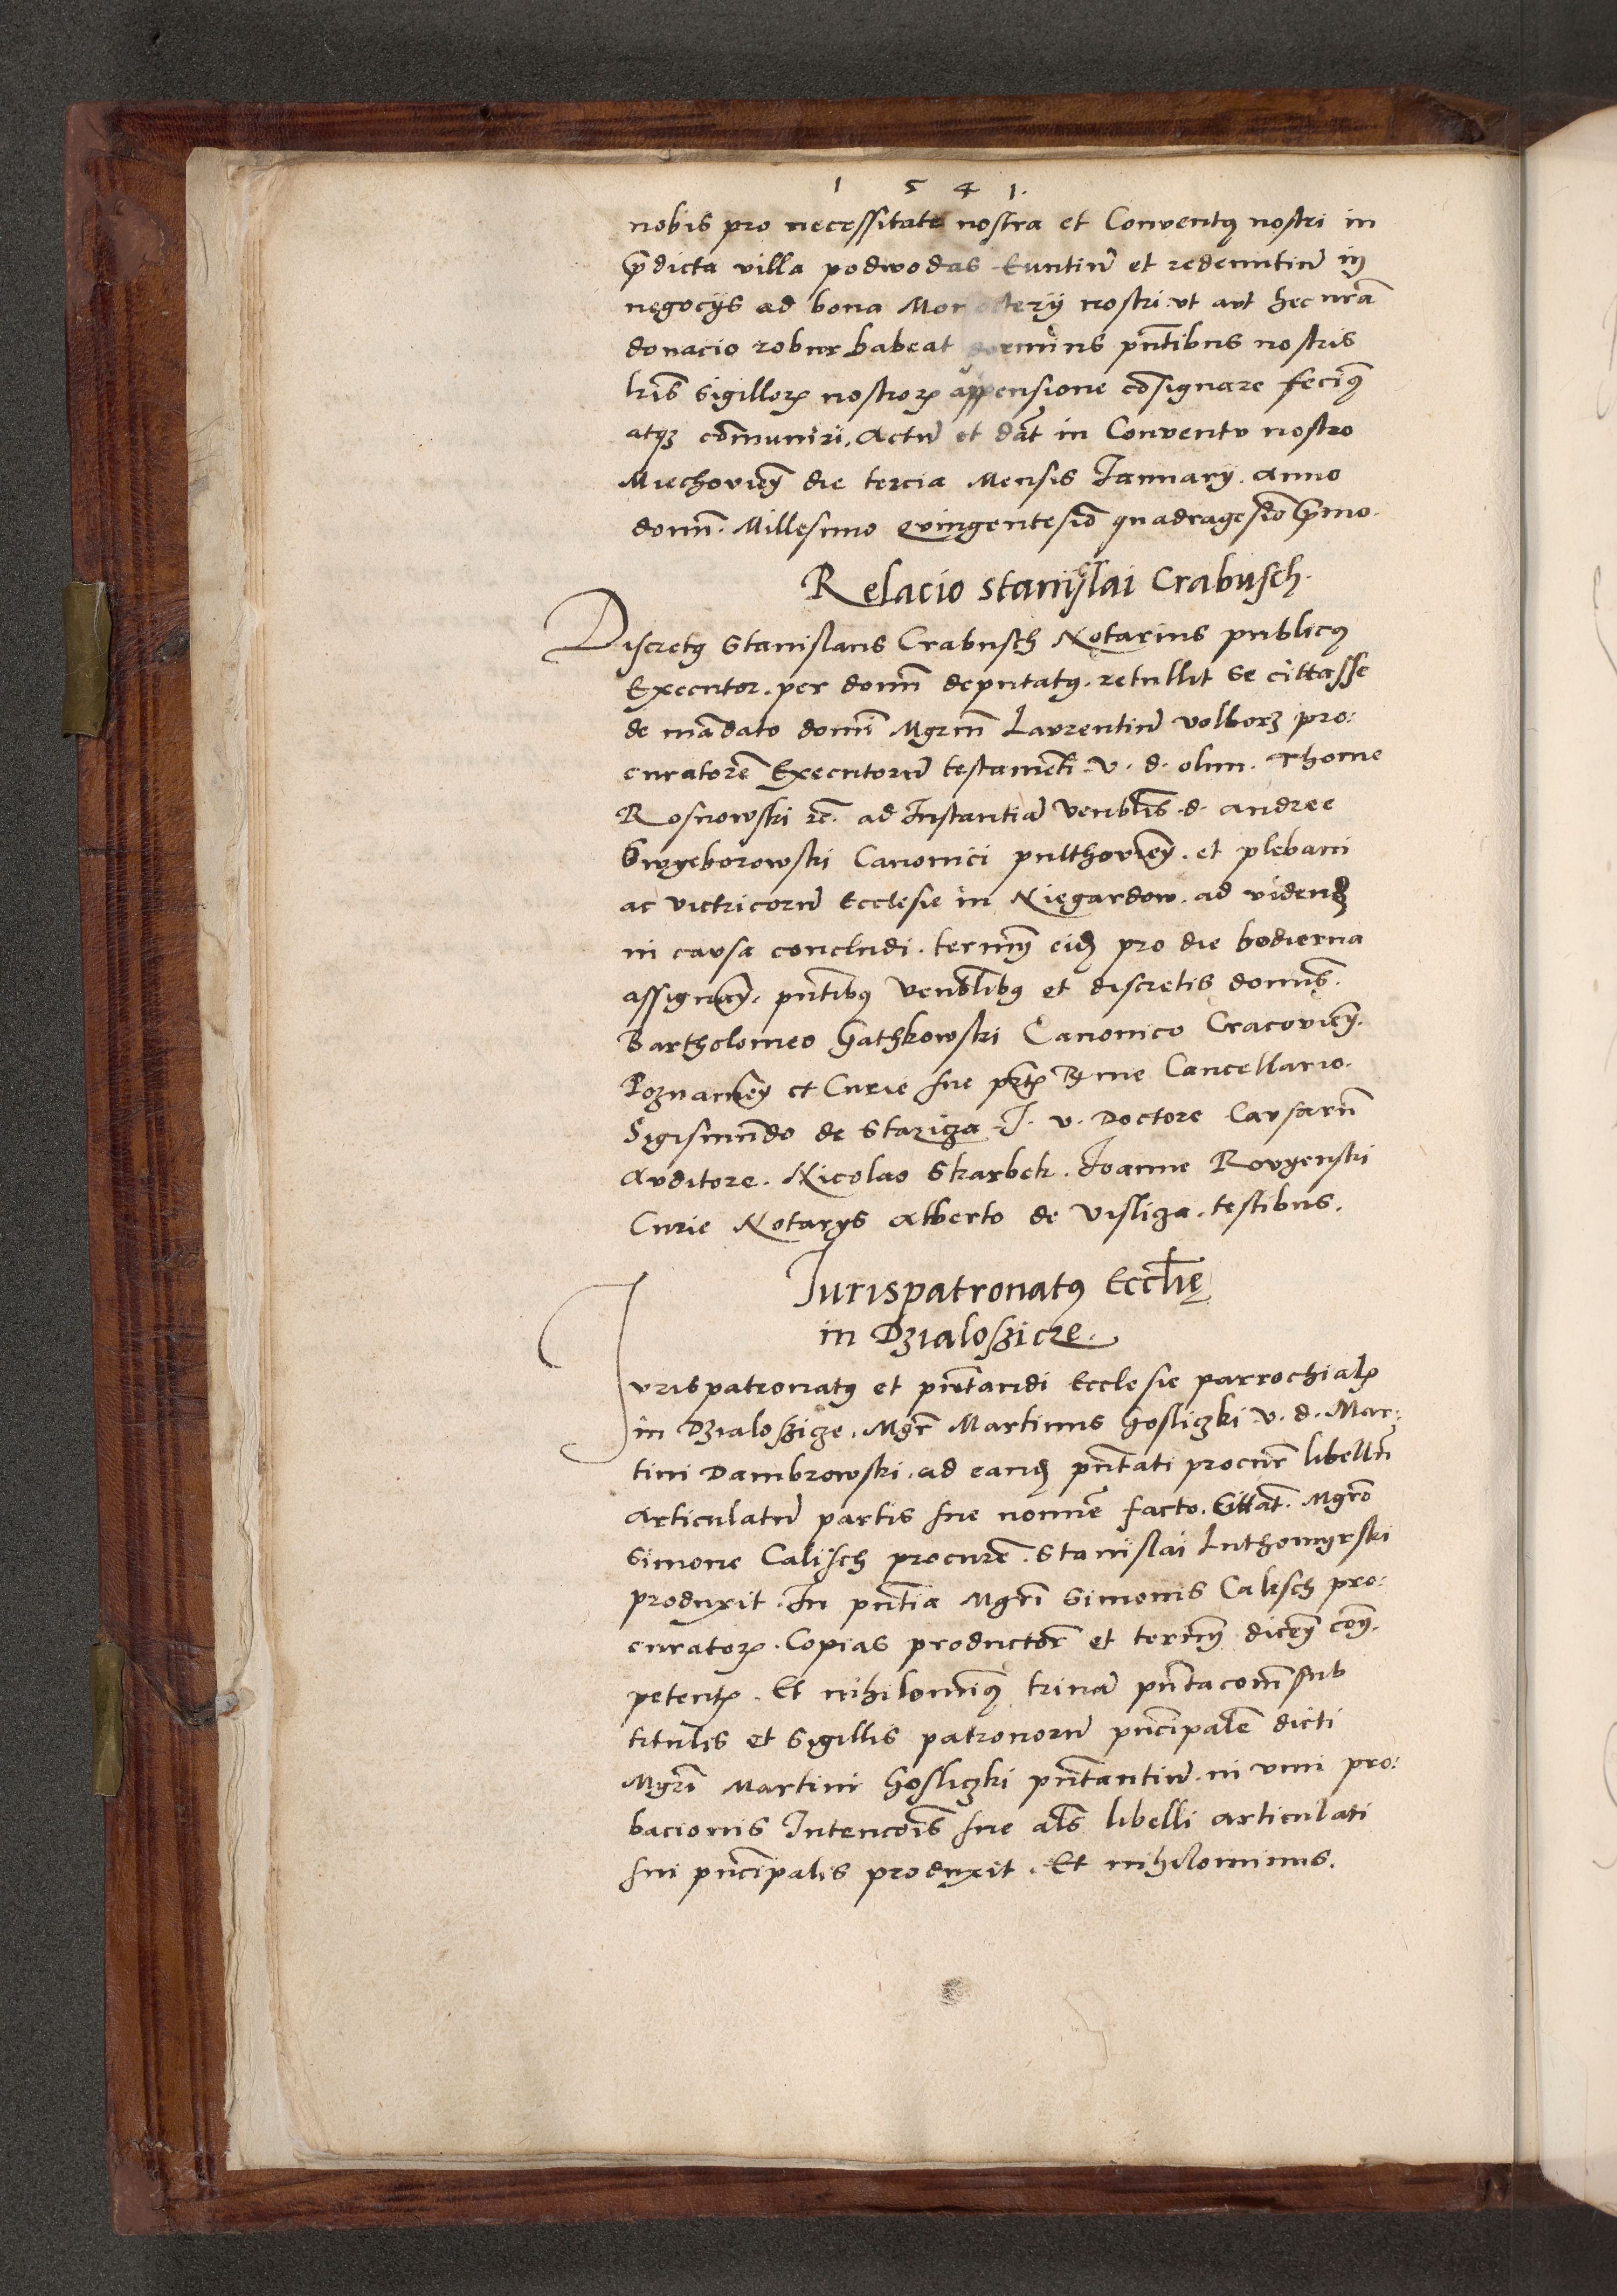 1 5 4 1.
nobis pro necessitate nostra et Conventꝰ nostri in
p̄dicta villa podwodas Euntiū et redeuntiū in
negocijs ad bona Monasterij nostri vt aūt hec nr̄a
donacio robur habeat pn̄tibus nostris
lrīs Sigilloꝝ nostroꝝ appensione cōsignare fecimꝰ
atqꝫ cōmuniri. Actū et dāt in Conventu nostro
Miechovien̄ die tercia Mensis Januarij. Anno
domī. Millesimo Quingentesiō quadragesiō p̄mo.
Relacio Stanislai Crabusch.
Discretꝰ Stanislaus Crabusch Notarius publicꝰ
Executor. per domī deputatꝰ. retullit se cittasse
de mādato domī Mgrm̄ Laurentiū Volborz pro:
curatorē Executorū testamētī. V. d. olim. Thome
Rosnowski ꝛc. ad Instantiā Venblīs. d. Andree
Swyeborowski Canonici pulthovien̄. et plebani
ac victricorū Ecclesie in Niegardow. ad videnđ
in causa concludi. termīn eiđ pro die hodierna
assignan̄. pn̄tibꝰ Venblībꝰ et discretis domīs.
Bartholomeo Gathkowski Canonico Cracovien̄.
Poznanien̄ et Curie sue Cancellario.
Sigismundo de Stazicza J. V. Doctore Causarū
Auditore. Nicolao Skarbek. Joanne Rovyenski
Curie Notarijs Alberto de Visliza. testibus.
Jurispatronatꝰ Eccłię
in Dzialoszicze.
Jurispatronatꝰ et pn̄tandi Ecclesie parrochialꝭ
in Dzialoszicze. Mgr̄ Martinus Gosliczki. V. d. Mar:
tini Dambrowski. ad eanđ pn̄tati procur̄ libellū
Articulatū partis sue nomīe facto. Cittāt. Mgrō
Simone Calisch procurē. Stanislai Luthomyrski
produxit. In pn̄tia Mgrī Simonis Calisch pro:
curatorꝭ. Copias productor̄ et termīn dicen̄ con̄.
petentꝭ. Et nihilominꝰ trinā pn̄tacōm sub
titulis et Sigillis patronorū prīncipalē dicti
Mgrī Martini Gosliczki pn̄tantiū. in vim pro:
bacionis Intencōis sue als̄ libelli articulati
sui prīncipalis produxit. Et nihilominus.